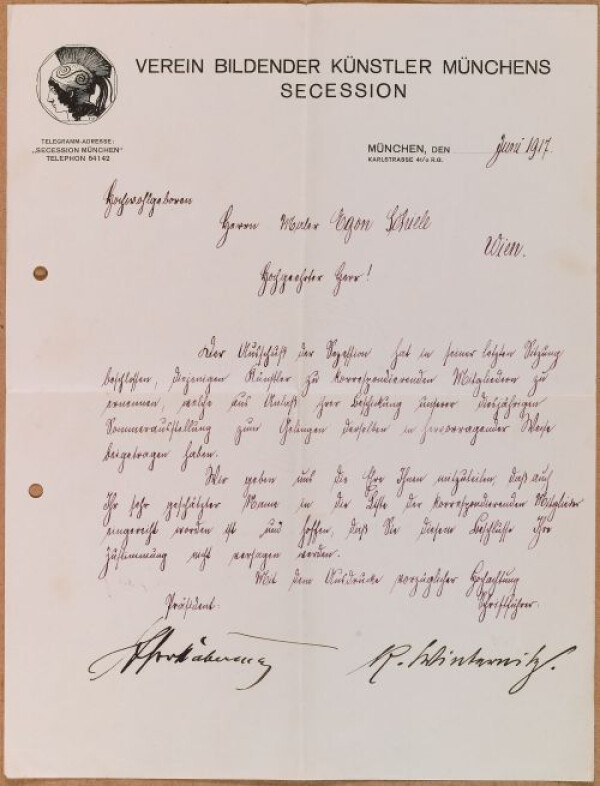 VEREIN BILDENDER KÜNSTLER MÜNCHENS
SECESSION
TELEGRAMM-ADRESSE:
„SECESSION MÜNCHEN"
TELEPHON 54142
MÜNCHEN, DEN Juni 1917.
KARLSTRASSE
Hochwohlgeboren
Herrn Maler Egon Schiele
Wien.
Hochgeehrter Herr!
Der Ausschuß der Sezession hat in seiner letzten Sitzung
beschlossen, diejenigen Künstler zu korrespondierenden Mitgliedern zu
ernennen, welche aus Anlaß ihrer Beschickung unserer diesjährigen
Sommerausstellung zum Gelingen derselben in hervorragender Weise
beigetragen haben.
Wir geben uns die Ehre Ihnen mitzuteilen, daß auch
Ihr sehr geschätzter Name in die Liste der korrespondierenden Mitglieder
eingereiht worden ist und hoffen, daß Sie diesem Beschlusse Ihre
Zustimmung nicht versagen werden.
Mit dem Ausdrucke vorzüglicher Hochachtung
Präsident. Schriftführer.
R. Winternitz.